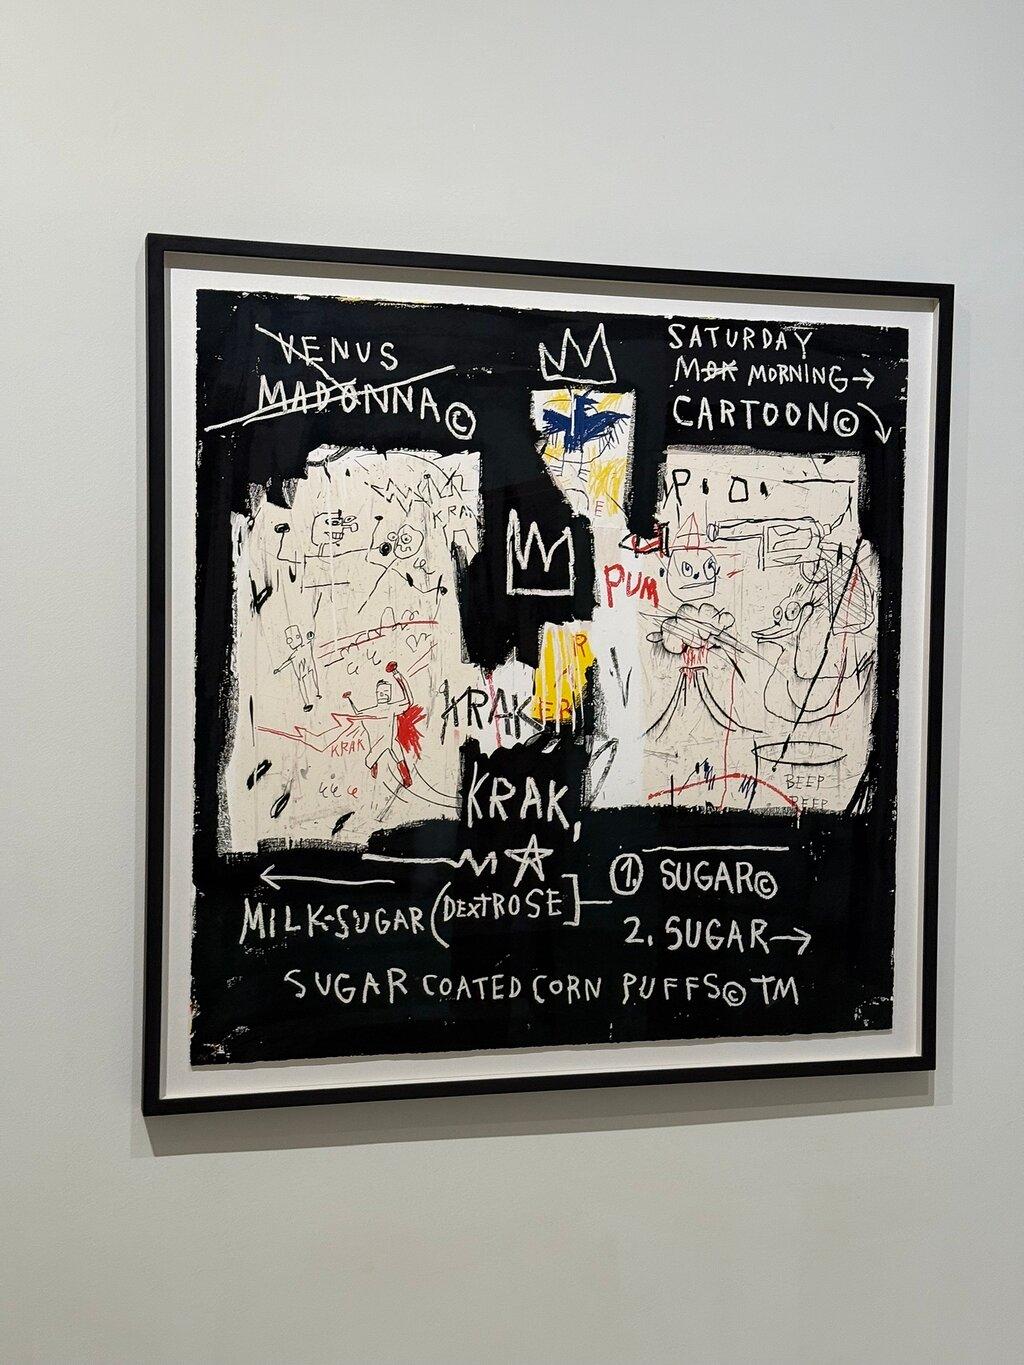 VENUS
MADONNA©
SATURDAY
MOR MORNING→
CARTOON©
KRA
P.O.
PUM
E
R
KRAK
ER
KRAK
BEEP
BEEP
KRAK,
MILK-SUGAR (DEXTROSE]
1. SUGAR©
2. SUGAR→
SUGAR COATED CORN PUFFS© TM